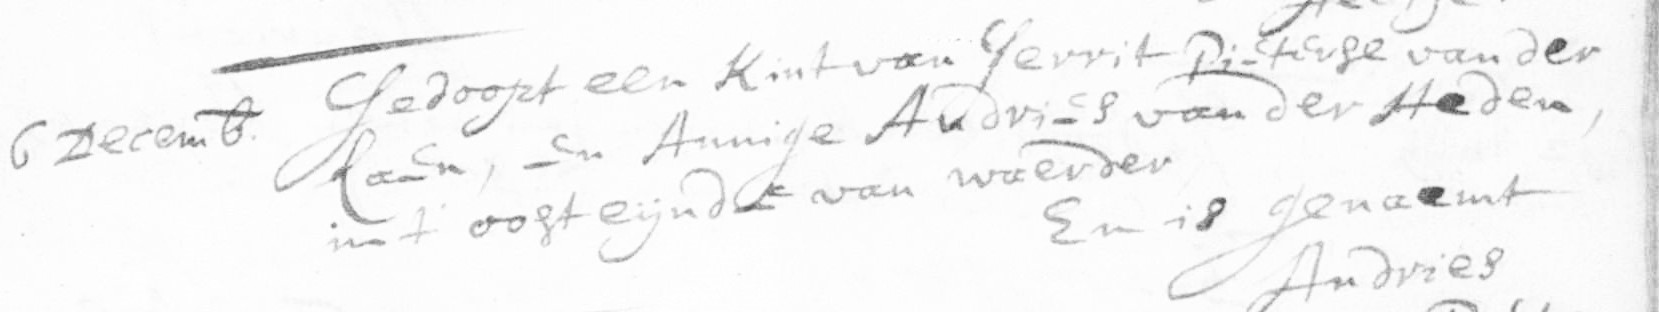 6 Decemb. Gedoopt een Kint van Gerrit Pieterse van der
Laen, en Annige Andries van der Heden,
in t oosteijnde van waerder
En is genaemt
Andries